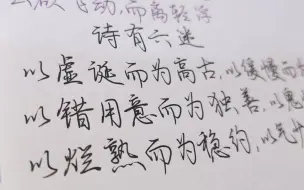 自动,而离轻浮
诗有六迷
以虚诞而为高古,以缓慢而
以错用意而为独善,以
以烂熟而为稳约,以气